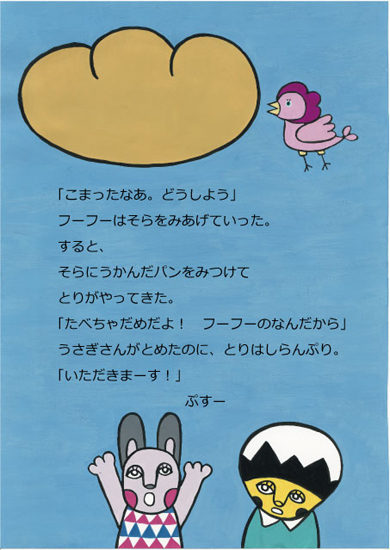 「こまったなあ。どうしよう」
フーフーはそらをみあげていった。
すると、
そらにうかんだパンをみつけて
とりがやってきた。
「たべちゃだめだよ！　フーフーのなんだから」
うさぎさんがとめたのに、とりはしらんぷり。
「いただきまーす！」
ぷすー